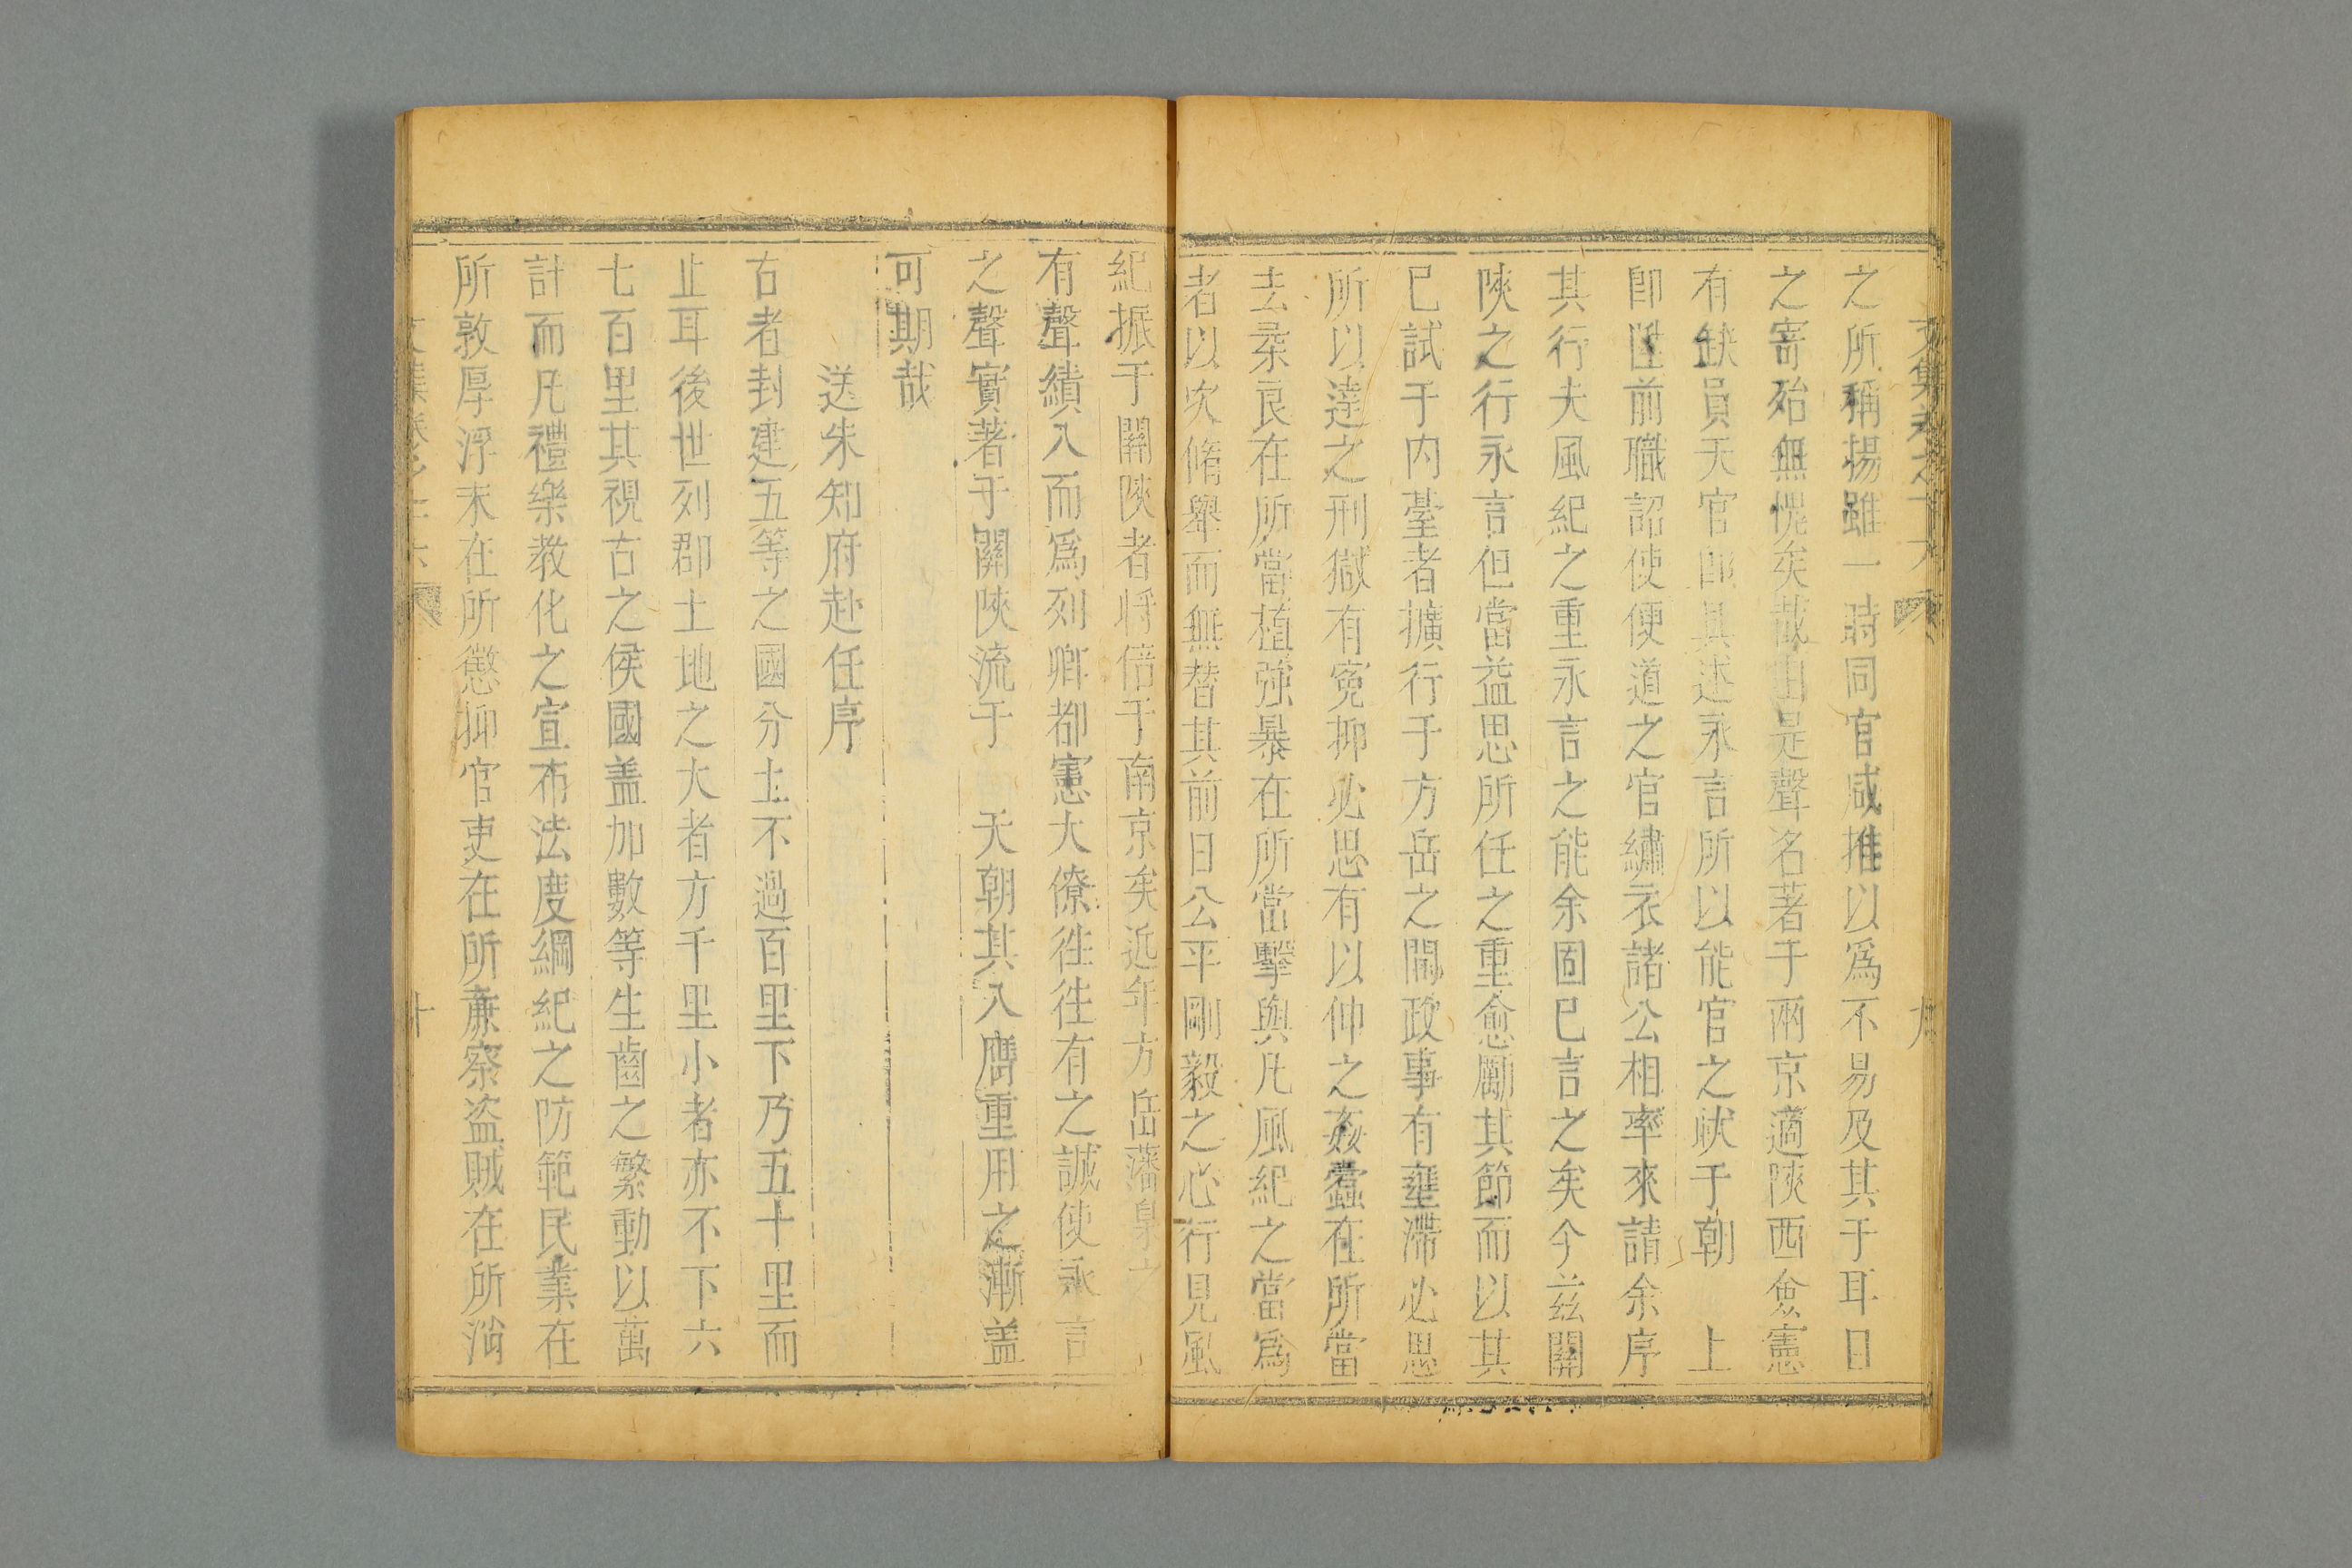 之所稱揚雖一時同官咸推以爲不易及其于耳日
之寄殆無愧矣哉由是聲名著于兩京適陝西僉憲
有缺員天官卽具述永言所以能官之狀于朝 上
卽陞前職詔使便道之官繡衣諸公相率來請余序
其行夫風紀之重永言之能余固已言之矣今兹關
陝之行永言但當益思所任之重愈勵其節而以其
已試于內臺者擴行于方岳之間政事有壅滯必思
所以達之刑獄有寃抑必思有以伸之姦蠧在所當
去柔良在所當植强暴在所當擊與凡風紀之當爲
者以次脩舉而無替其前日公平剛毅之心行見風
紀振于關陝者将倍于南京矣近年方岳藩臬之
有聲績入而爲列卿都憲大僚徃徃有之誠使永言
之聲實著于關陝流于 天朝其入膺重用之漸盖
可期哉
送朱知府赴任序
古者封建五等之國分土不過百里下乃五十里而
止耳後世列郡土地之大者方千里小者亦不下六
七百里其視古之侯國盖加數等生齒之繁動以萬
計而凡禮樂教化之宣布法度綱紀之防範民業在
所敦厚浮末在所懲抑官吏在所廉察盗賊在所消